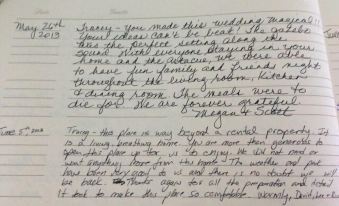 May 26th
2013
Tracey - You made this wedding magical!!
Your ideas can't be beat! The gazebo
was the perfect setting along the
sound. With everyone staying in your
home and the we were able
to have fun family and friends night
throughout the living room, kitchen
& dining room. The meals were to
die for. We are forever grateful
Megan & Scott
June 5th
- this place is way beyond a rental property. It
is a living, breathing home. You are more than generous to
open this place up for us to enjoy. We did not need or
want anything home from this The weather and
have been very good to us and there is no doubt we will
be back. Thanks again for all the preparation and detail
it took to make this place so comfortable. Warmly, David,